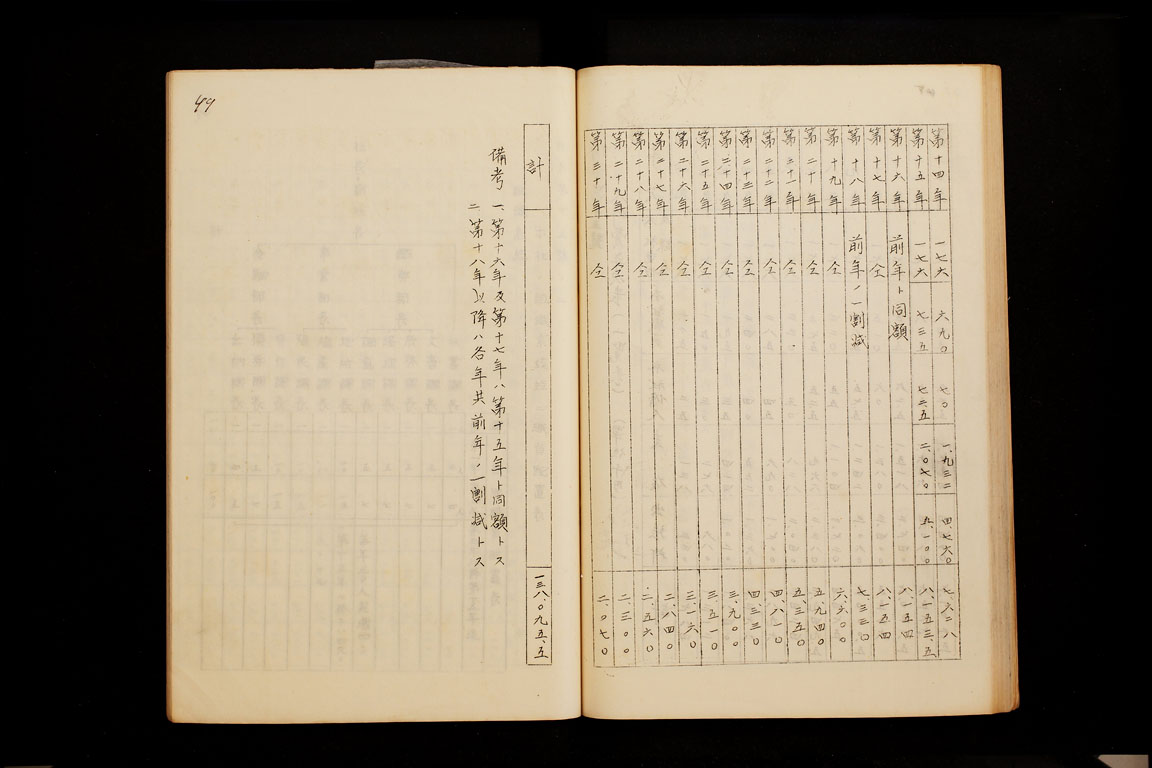 第十四年 一七六 六九〇 七〇 一、九三二 四、七六〇 七、六二八
第十五年 一七六 七三五 七二、五 二、〇七〇 五、一〇〇 八、一五三、五
第十六年 前年ト同額 八、一五四
第十七年 仝 八、一五四
第十八年 前年ノ一割減 七、三三〇
第十九年 仝 六、六〇〇
第二十年 仝 五、九四〇
第二十一年 仝 五、三五〇
第二十二年 仝 四、八一〇
第二十三年 仝 四、三三〇
第二十四年 仝 三、九〇〇
第二十五年 仝 三、五一〇
第二十六年 仝 三、一六〇
第二十七年 仝 二、八四〇
第二十八年 仝 二、五六〇
第二十九年 仝 二、三〇〇
第三十年 仝 二、〇七〇
計 一三八、〇九五、五
備考 一、第十六年及第十七年ハ第十五年ト同額トス
二 第十八年以降ハ各年共前年ノ一割減トス
49